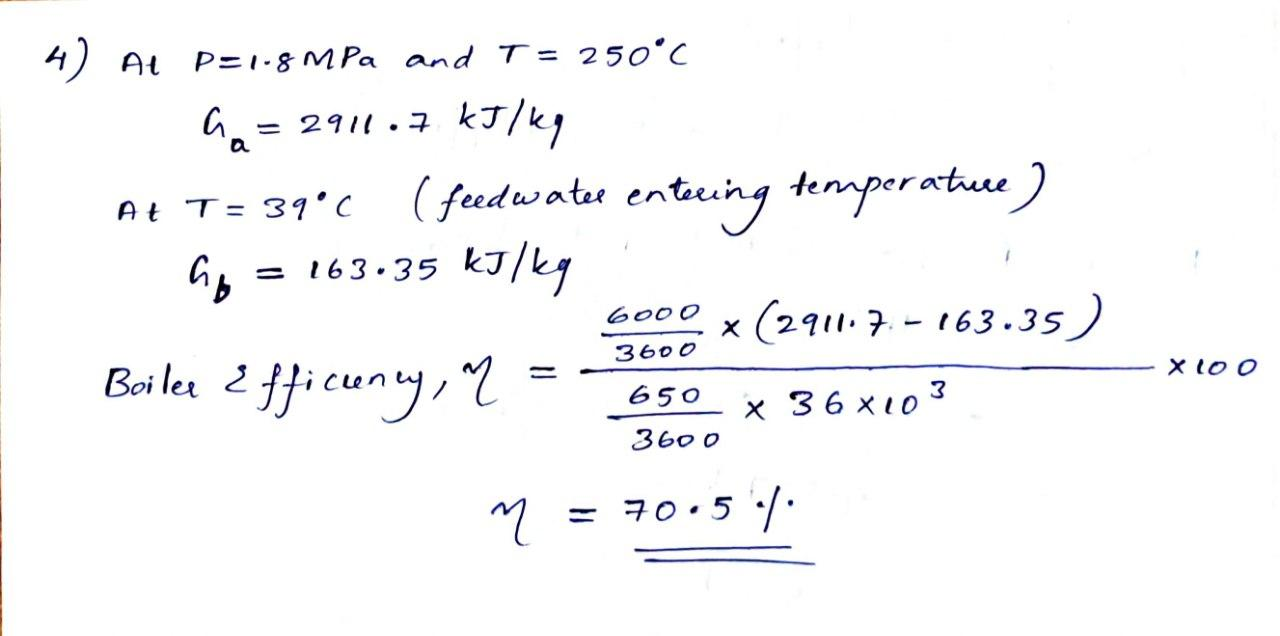 4) At P=1.8 MPa and T = 250°C
h_a = 2911.7 kJ/kg
At T = 39°C (feedwater entering temperature)
h_b = 163.35 kJ/kg
Boiler Efficiency, η = \frac{\frac{6000}{3600} × (2911.7 - 163.35)}{\frac{650}{3600} × 36×10^3} ×100
η = 70.5 %